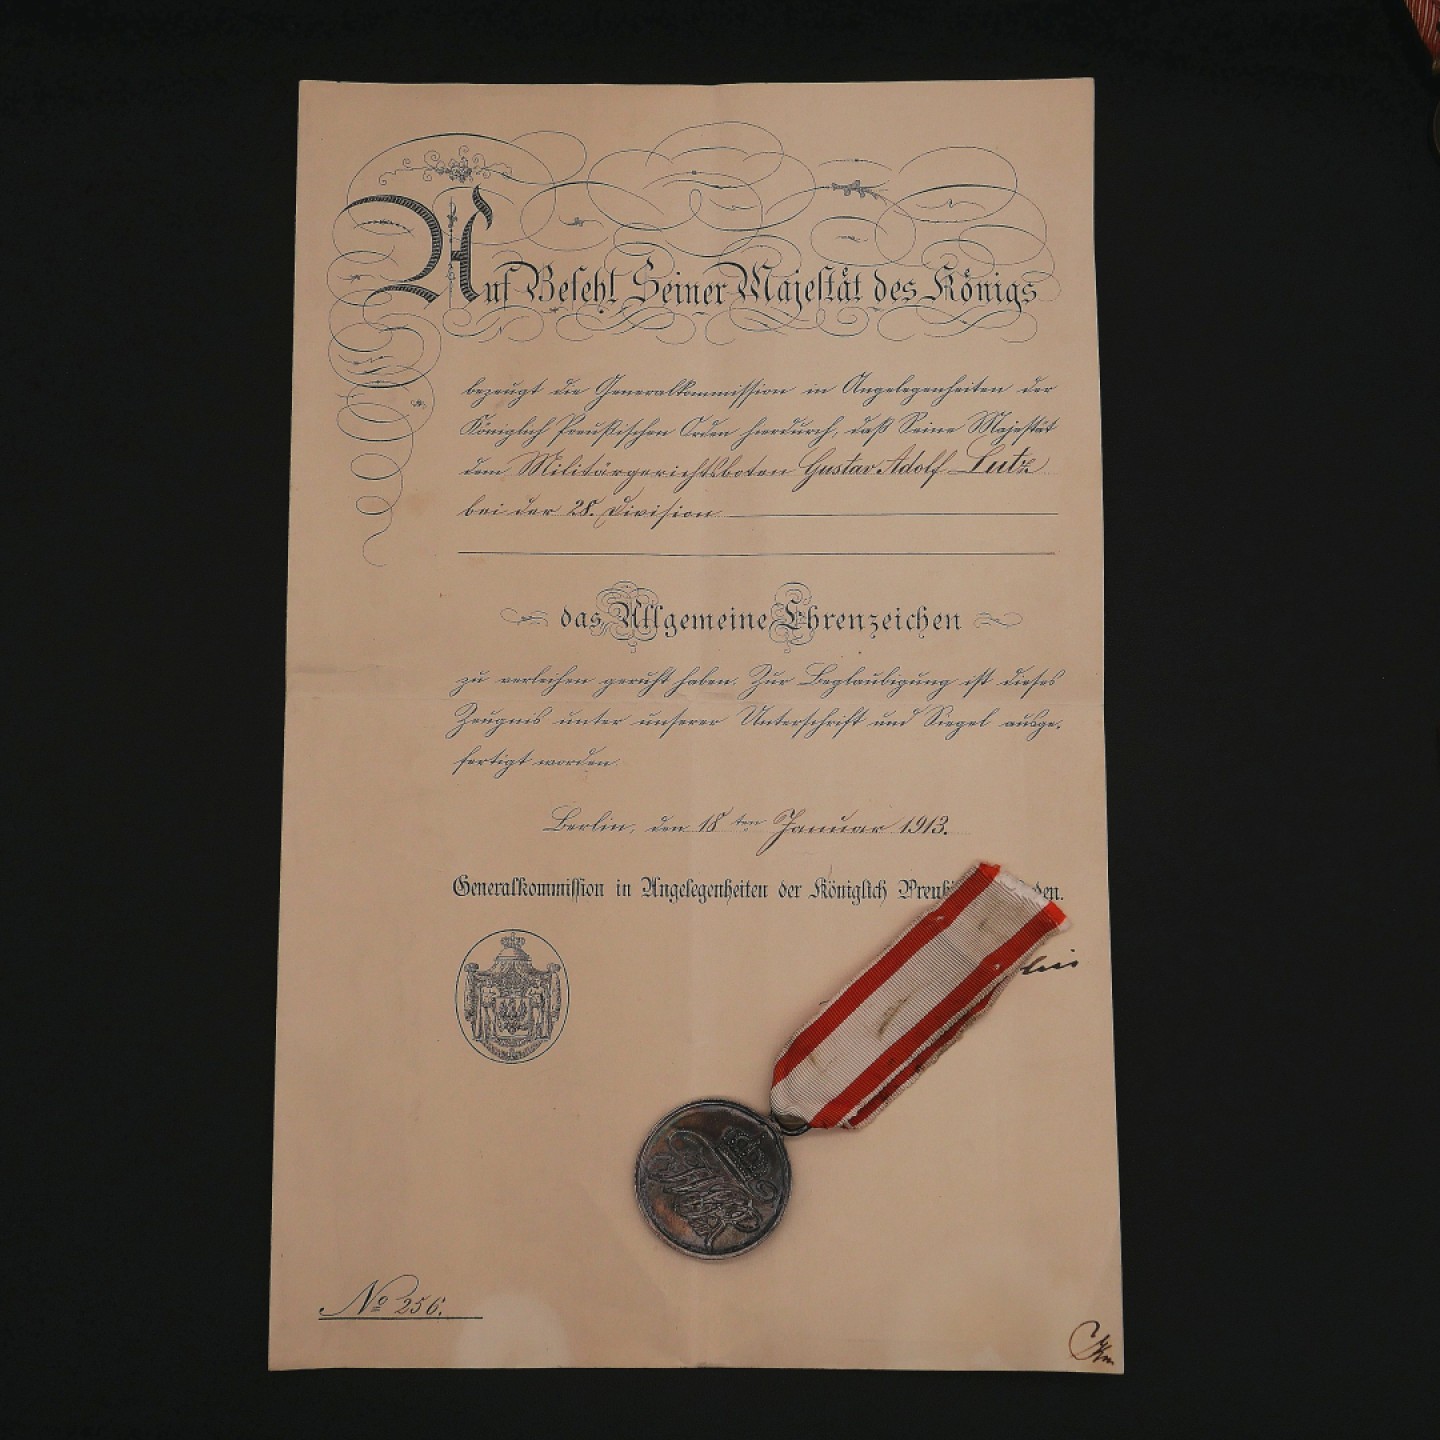 Auf Befehl Seiner Majestät des Königs
bezeugt die Generalkommission in Angelegenheiten der
Königlich Preußischen Orden hierdurch, daß Seine Majestät
dem Militärgerichtsboten Gustav Adolf Lutz
bei der 28. Division
das Allgemeine Ehrenzeichen
zu verleihen geruht haben. Zur Beglaubigung ist dieses
Zeugnis unter unserer Unterschrift und Siegel ausge-
fertigt worden.
Berlin, den 18ten Januar 1913.
Generalkommission in Angelegenheiten der Königlich
No 256.